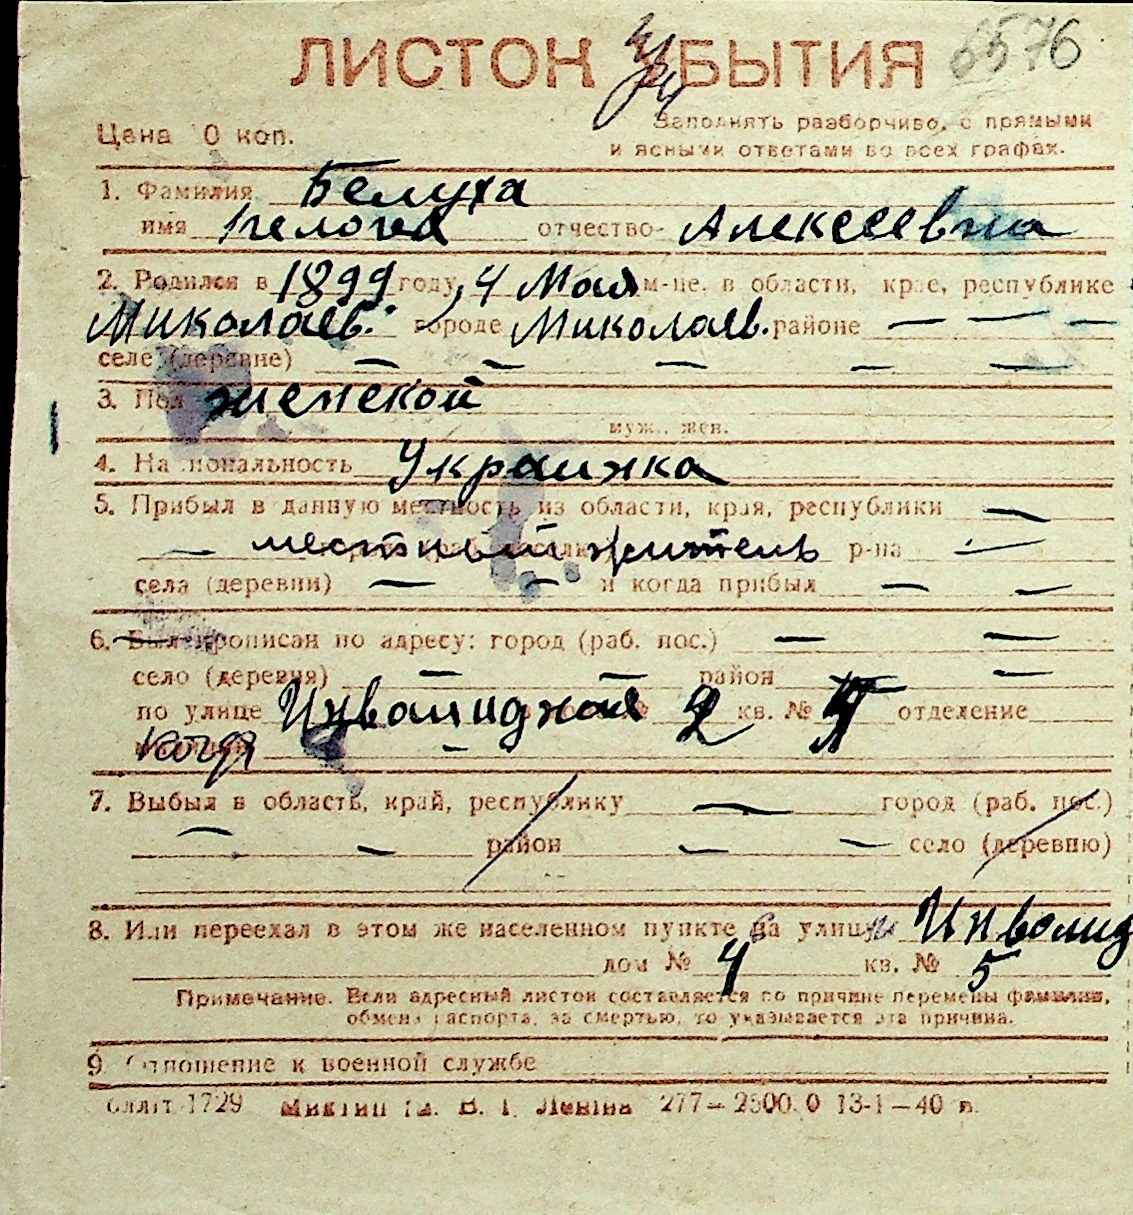 ЛИСТОК УБЫТИЯ 6576
Цена 10 коп.
Заполнять разборчиво, с прямыми
и ясными ответами во всех графах.
1. Фамилия Белуха
имя отчество Алексеевна
2. Родился в 1899 году, 4 Мая м-це. в области, крае, республике
Миколаев. городе Миколаев. районе — — —
селе (деревне) — — — — —
3. Пол женской
муж., жен.
4. Национальность Украинка
5. Прибыл в данную местность из области, края, республики —
— местный житель р-на —
села (деревни) — — и когда прибыл — —
6. Был прописан по адресу: город (раб. пос.) — —
село (деревня) — — район —
по улице Инвалидная № 2 кв. № отделение
когда —
7. Выбыл в область, край, республику — город (раб. пос.)
— — район — — село (деревню)
8. Или переехал в этом же населенном пункте на улицу Инвалид
дом № 4 кв. № 5
Примечание. Если адресный листок составляется по причине перемены фамилии,
обмена паспорта, за смертью, то указывается эта причина.
9. Отношение к военной службе
1729 В. І. Леніна 277—2500.0 13-1—40 п.